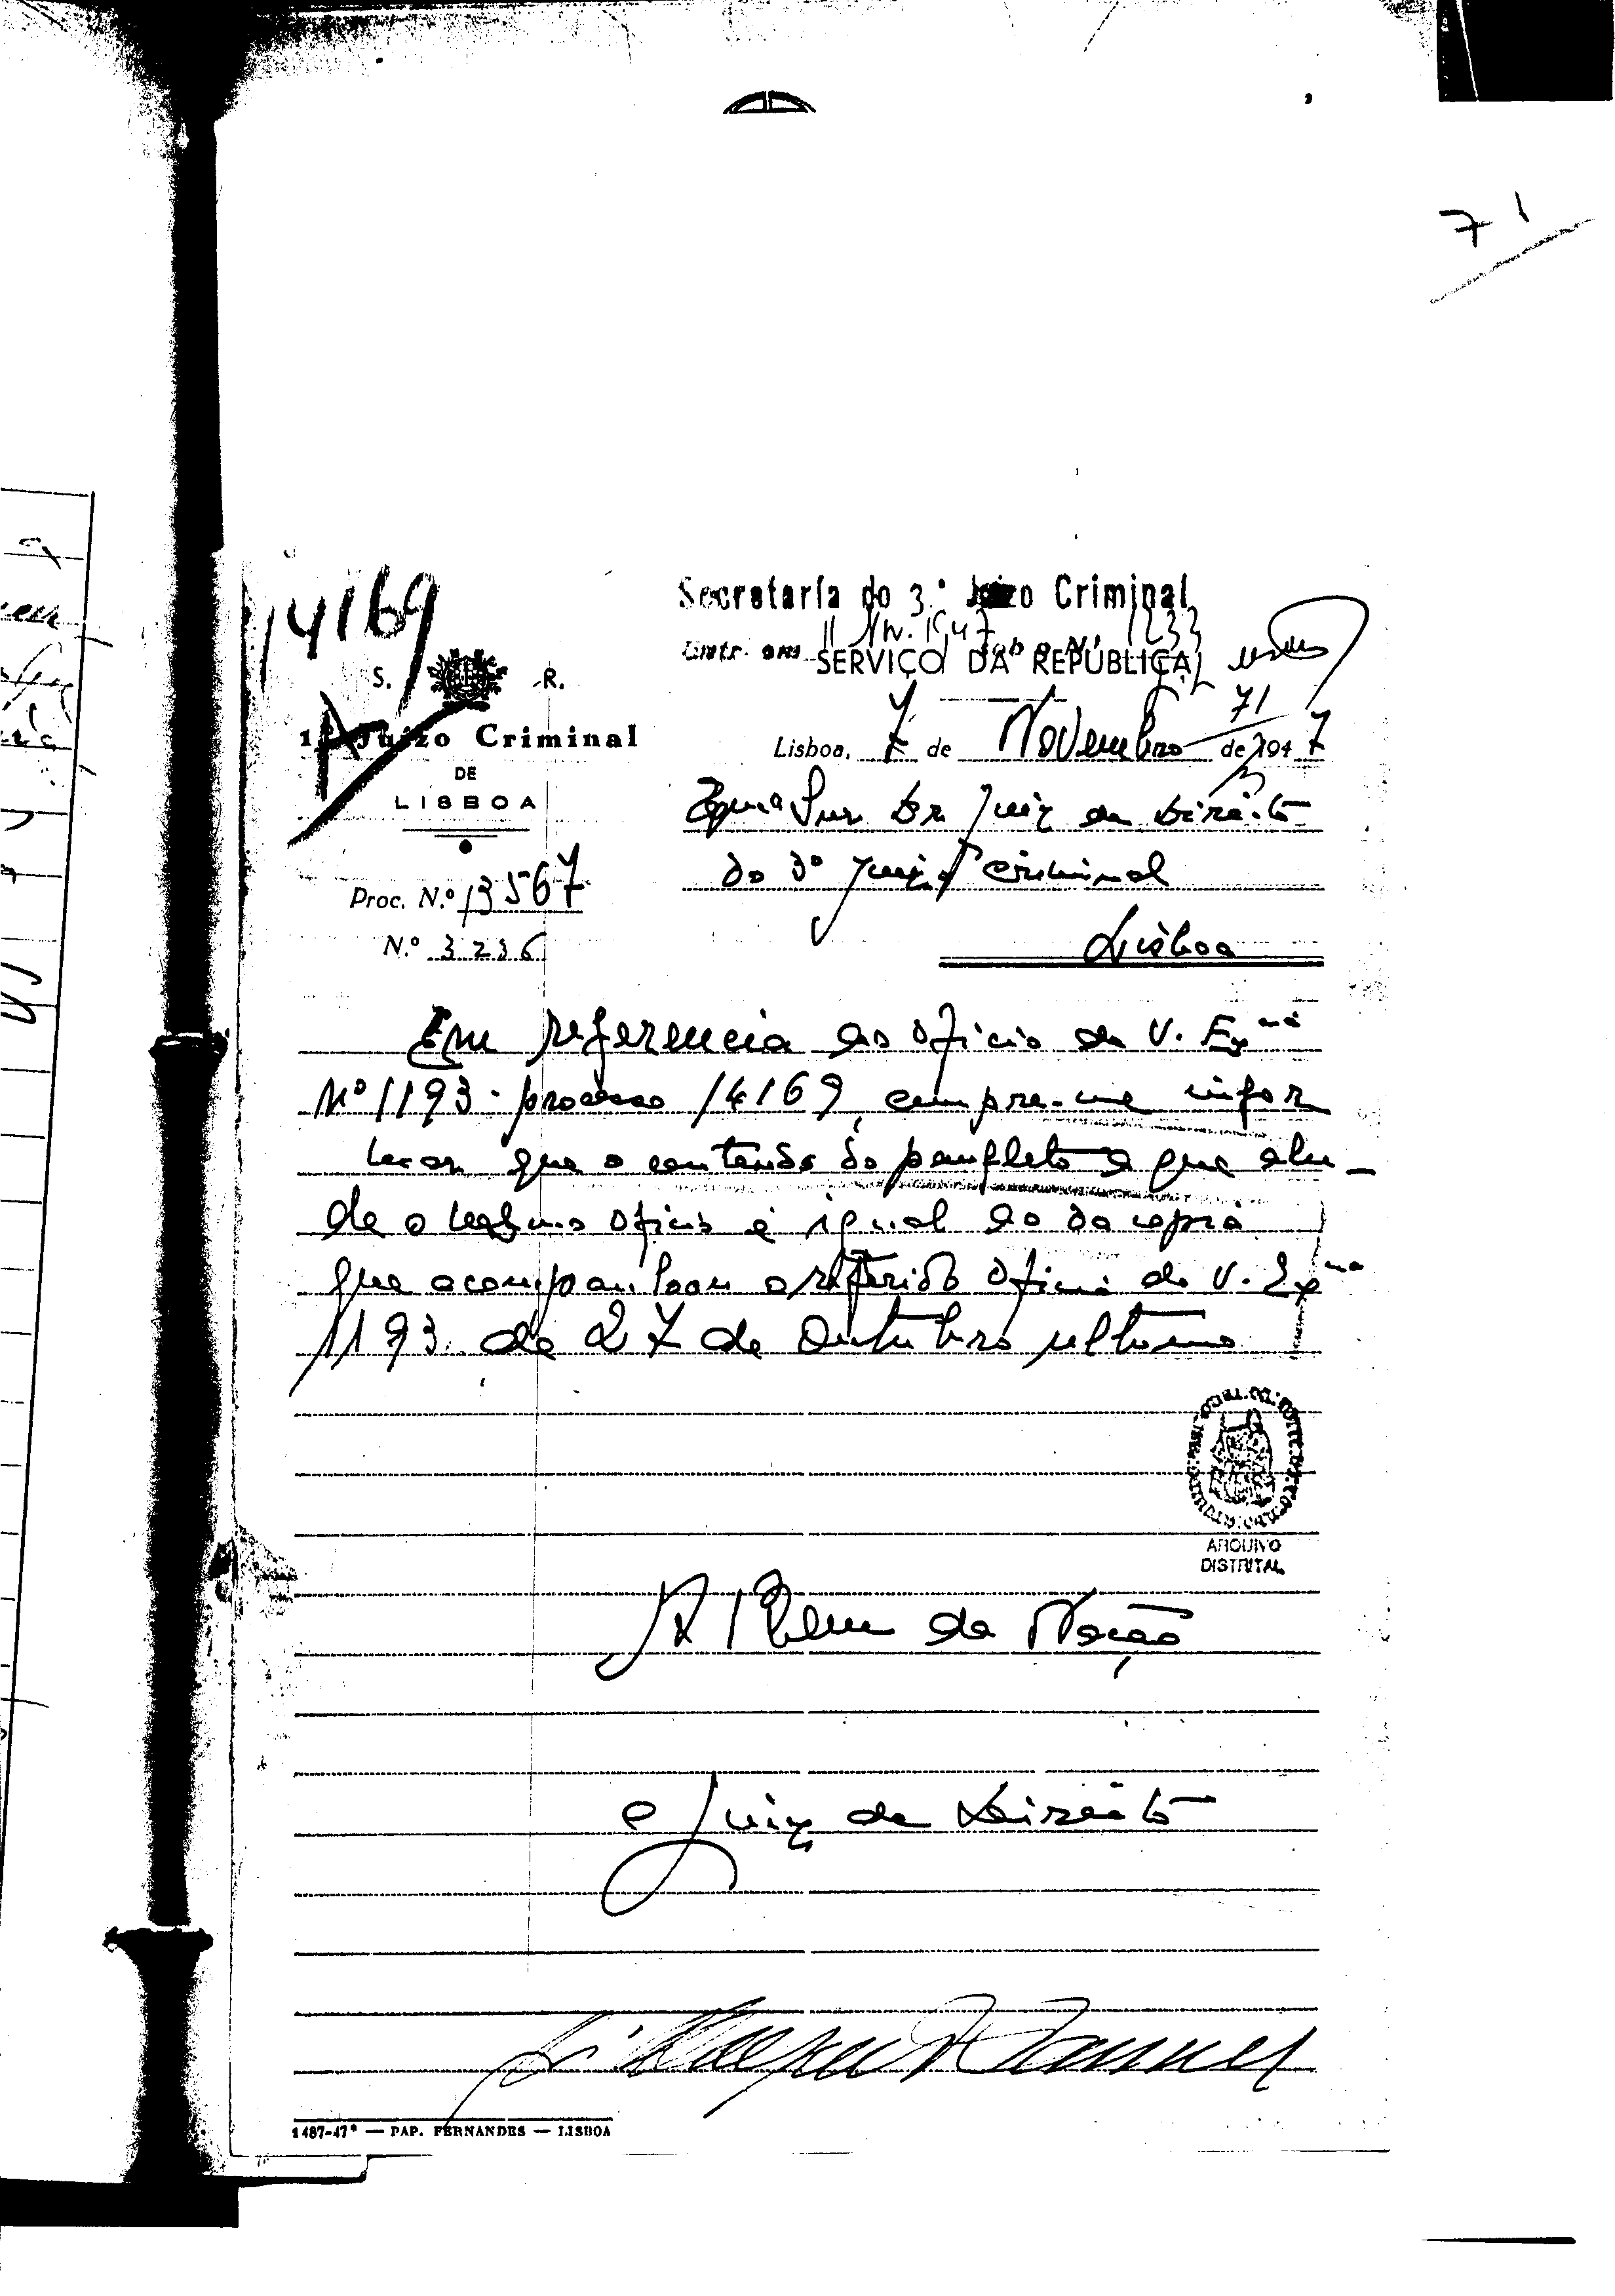 71
14169
Secretaria do 3.º Juizo Criminal
Entr. em 11 Nv. 1947 sob o N.º 1233
SERVIÇO DA REPÚBLICA
S. R.
71
1.º Juízo Criminal
DE
LISBOA
Lisboa, 7 de Novembro de 1947
Exmo Snr Dr Juiz de Direito
do 3º Juizo Criminal
Lisboa
Proc. N.º 13567
N.º 3236
Em referencia ao oficio de V. Exma
Nº 1193 - processo 14169, cumpre-me infor
que o conteudo do panfleto a que alu-
de o mesmo oficio é igual ao da copia
que acompanhou o referido oficio de V. Exma
1193 de 27 de Outubro ultimo
ARQUIVO
DISTRITAL
A Bem da Nação
O Juiz de Direito
1487-47 — PAP. FERNANDES — LISBOA